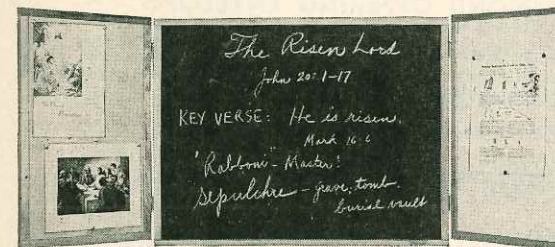 The Risen Lord
John 20:1-17
KEY VERSE: He is risen.
Mark 16:6
'Rabboni' - Master!
Sepulchre - grave, tomb.
burial vault